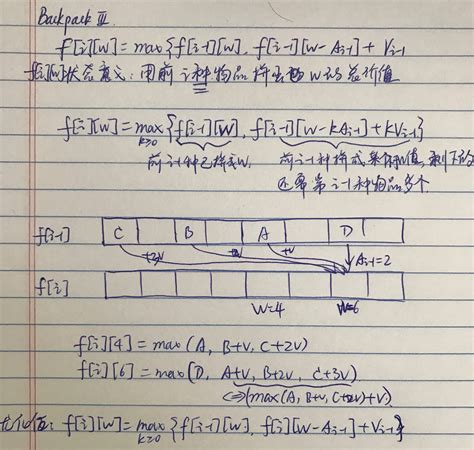 Backpack III
f[i][w] = max{f[i-1][w], f[i-1][w-Ai-1]+Vi-1
f[i][w]状态意义: 用前i种物品拼出w的总价值
f[i][w] = max k≥0 {f[i-1][w], f[i-1][w-kAi-1]+kVi-1}
前i-1种已拼成w. 前i-1种拼成某个值, 剩下的
还需第i-1种物品多个
f[i-1] C B A D
+3v +2v +v Ai-1=2
f[i]
W=4 W=6
f[i][4] = max(A, B+v, C+2v)
f[i][6] = max(D, A+v, B+2v, C+3v)
⇔(max(A, B+v, C+2v)+v)
优化后: f[i][w] = max k≥0 {f[i-1][w], f[i][w-Ai-1]+Vi-1}